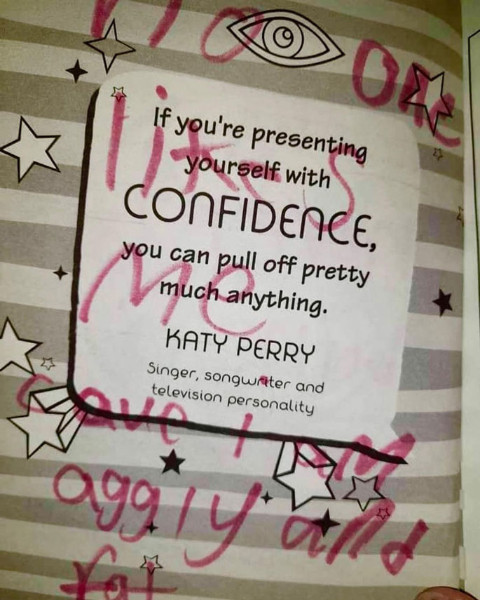 no one
likes
me
caue I am
aggly and
fat
If you're presenting
yourself with
CONFIDENCE,
you can pull off pretty
much anything.
KATY PERRY
Singer, songwriter and
television personality